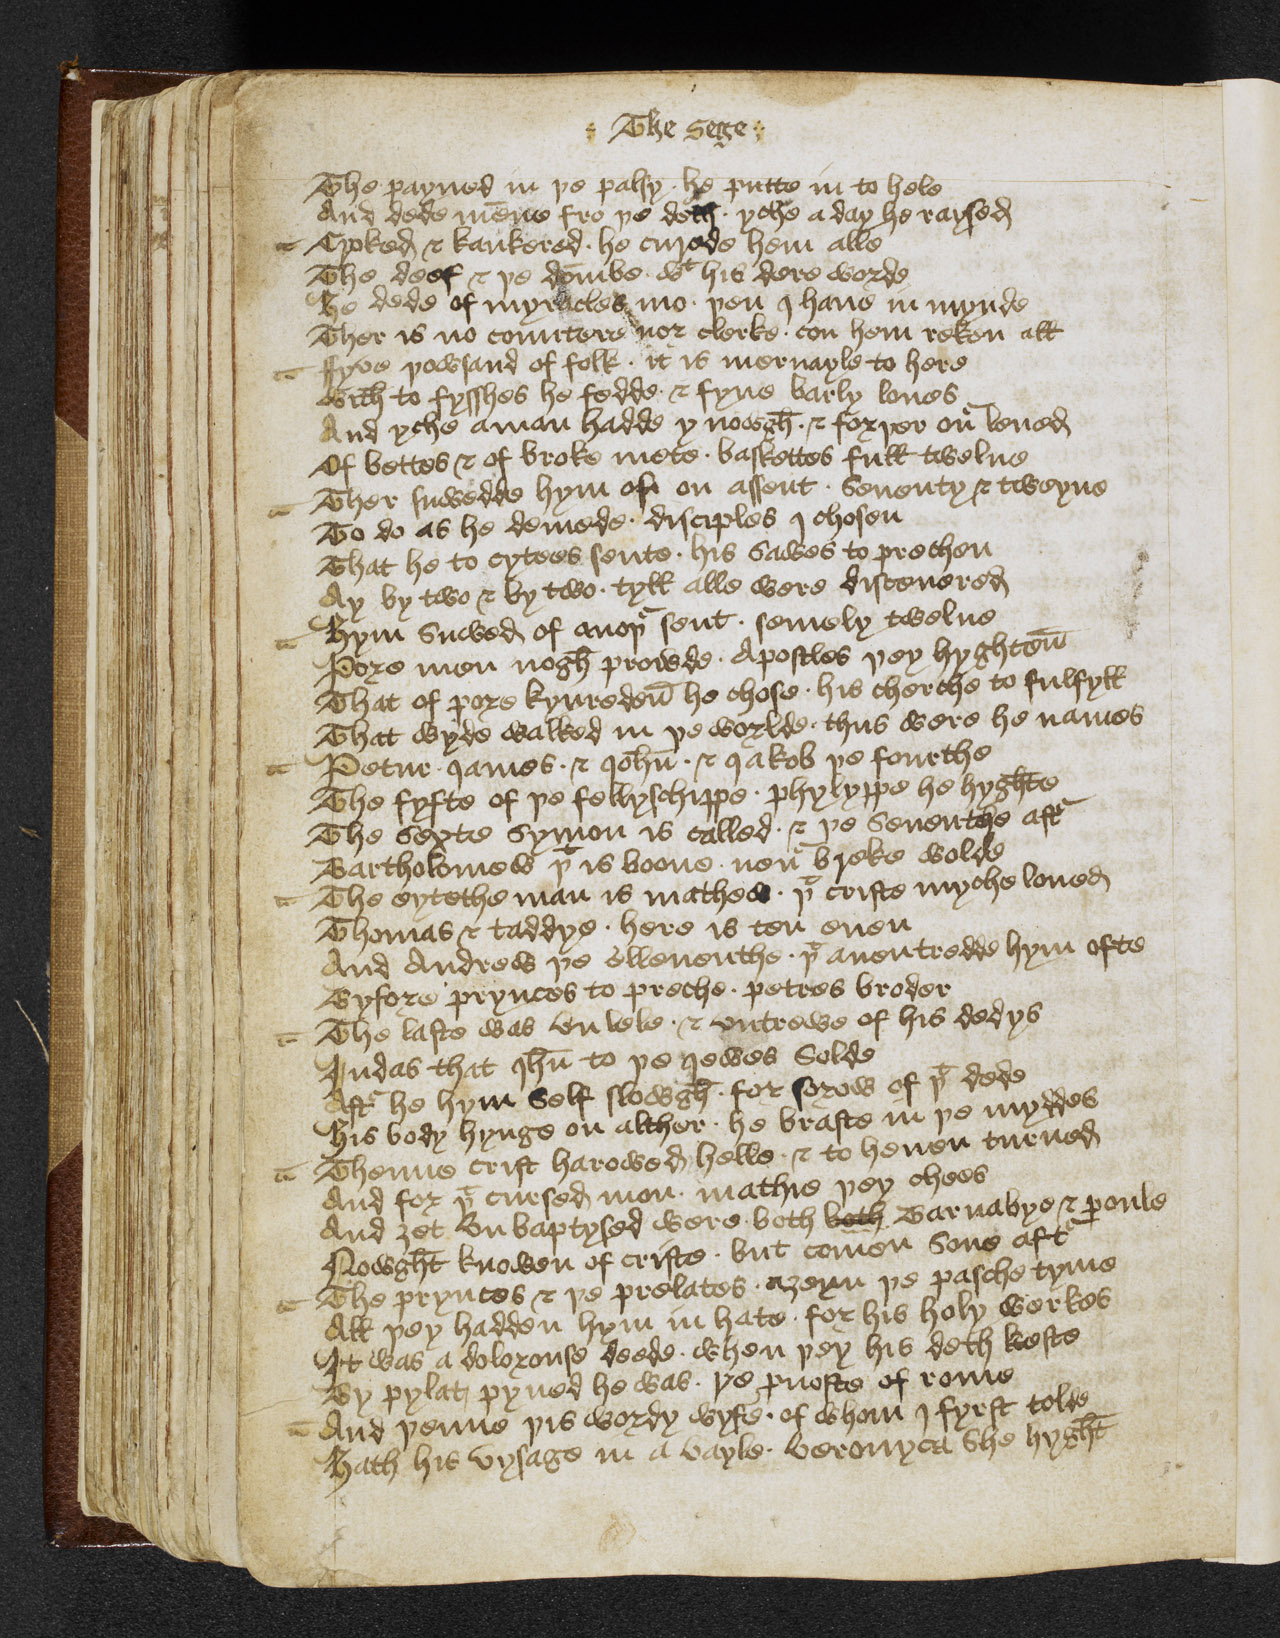 : The Sege :
The payned in þe palsy · he putte in to hele
And dede mēne fro þe deth · yche a day he raysed
Croked & kankered · he cured hem alle
The deef & þe dombe · wt his dere worde
He dede of myracles mo · þen I haue in mynde
Ther is no countere nor clerke · con hem reken all
ffyve þowsand of folk · it is meruayle to here
With to fysshes he fedde · & fyue barly loues
And yche a man hadde y nowgh · & forþer ouer leued
Of bettes & of broke mete · baskettes full twelue
Ther suwedde hym of on assent · Seuenty & tweyne
To do as he demede · disciples I chosen
That he to cytees sente · his Sawes to prechen
Ay by two & by two · tyll alle were disceuered
Hym Suwed of anoþer sent · semely twelue
Pore men nogh prowde · Apostles þey hyghten
That of pore kynreden he chose · his cherche to fulfyll
That wyde walked in þe worlde · thus were he names
Petur · James · & John · & Jakob þe fourthe
The fyfte of þe fellyschippe · phylyppe he hyghte
The Sexte Symon is called · & þe Seuenthe aft
Bartholomew þt is boone · neuer breke wolde
The eytethe man is mathew · þt criste myche loued
Thomas & taddye · here is ten euen
And Andrew þe elleuenthe · þt auentredde hym ofte
Byfore prynces to preche · petres broder
The laste was vn lele · & vntrewe of his dedys
Judas that Jhu to þe Jewes Solde
Aft he hym Self slowgh · for sorow of þt dede
His body hynge on alther · he braste in þe myddes
Thenne crist harowed helle · & to heuen turned
And for þt cursed mon · mathie þey chees
And ȝet Vnbaptysed were · both both Barnabye & poule
Nowght knowen of criste · but comen Sone aft
The prynces & þe prelates · aȝenn þe pasche tyme
All þey hadden hym in hate · for his holy werkes
It was a dolorouse deede · when þey his deth keste
By pylat pyned he was · þe prouoste of rome
And þenne þis wordy wyfe · of whom I fyrst tolde
Hath his vysage in a vayle · Veronyca She hyght